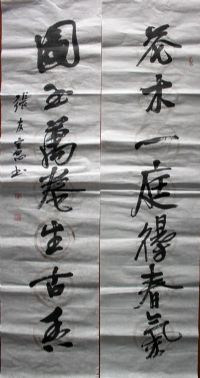 花木一庭得春氣
圖書萬卷生古香
張友憲書